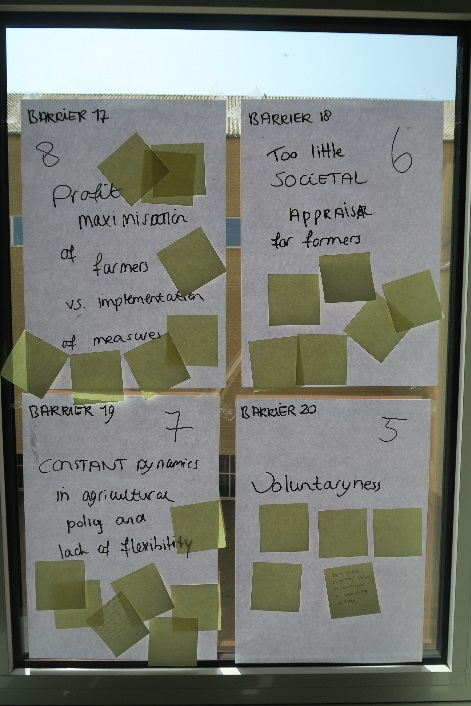 BARRIER 17
8
Profit
maximisation
of
farmers
vs. implementation
of measures
BARRIER 18
6
Too little
SOCIETAL
APPRAISA
for farmers
BARRIER 19
7
CONSTANT Dynamics
in agricultural
policy and
lack of flexibility
BARRIER 20
5
Voluntaryness